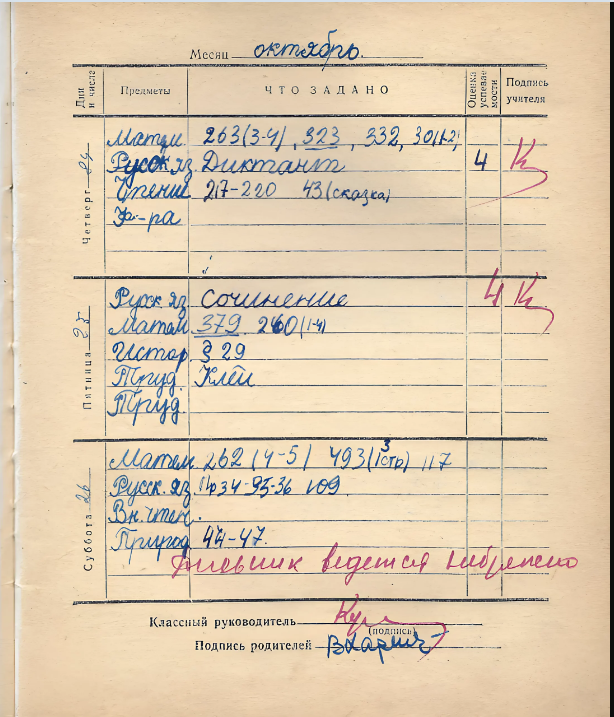 Месяц октябрь.
Дни и числа Предметы ЧТО ЗАДАНО Оценка успеваемости Подпись учителя
Четверг 24
Матем 263(3-4), 323, 332, 30(1-2)
Русск яз. Диктант 4
Чтение 217-220 43(сказка)
Ф-ра
Пятница 25
Русск яз. сочинение 4
Матем. 379 260(1-4)
Истор. § 29
Труд. Клей
Труд.
Суббота 26
Матем. 262(4-5) 493(3 117
Русск. яз. 34-35-36 109.
Вн. чтен.
Природ 44-47.
Дневник ведется небрежно
Классный руководитель
(подпись)
Подпись родителей